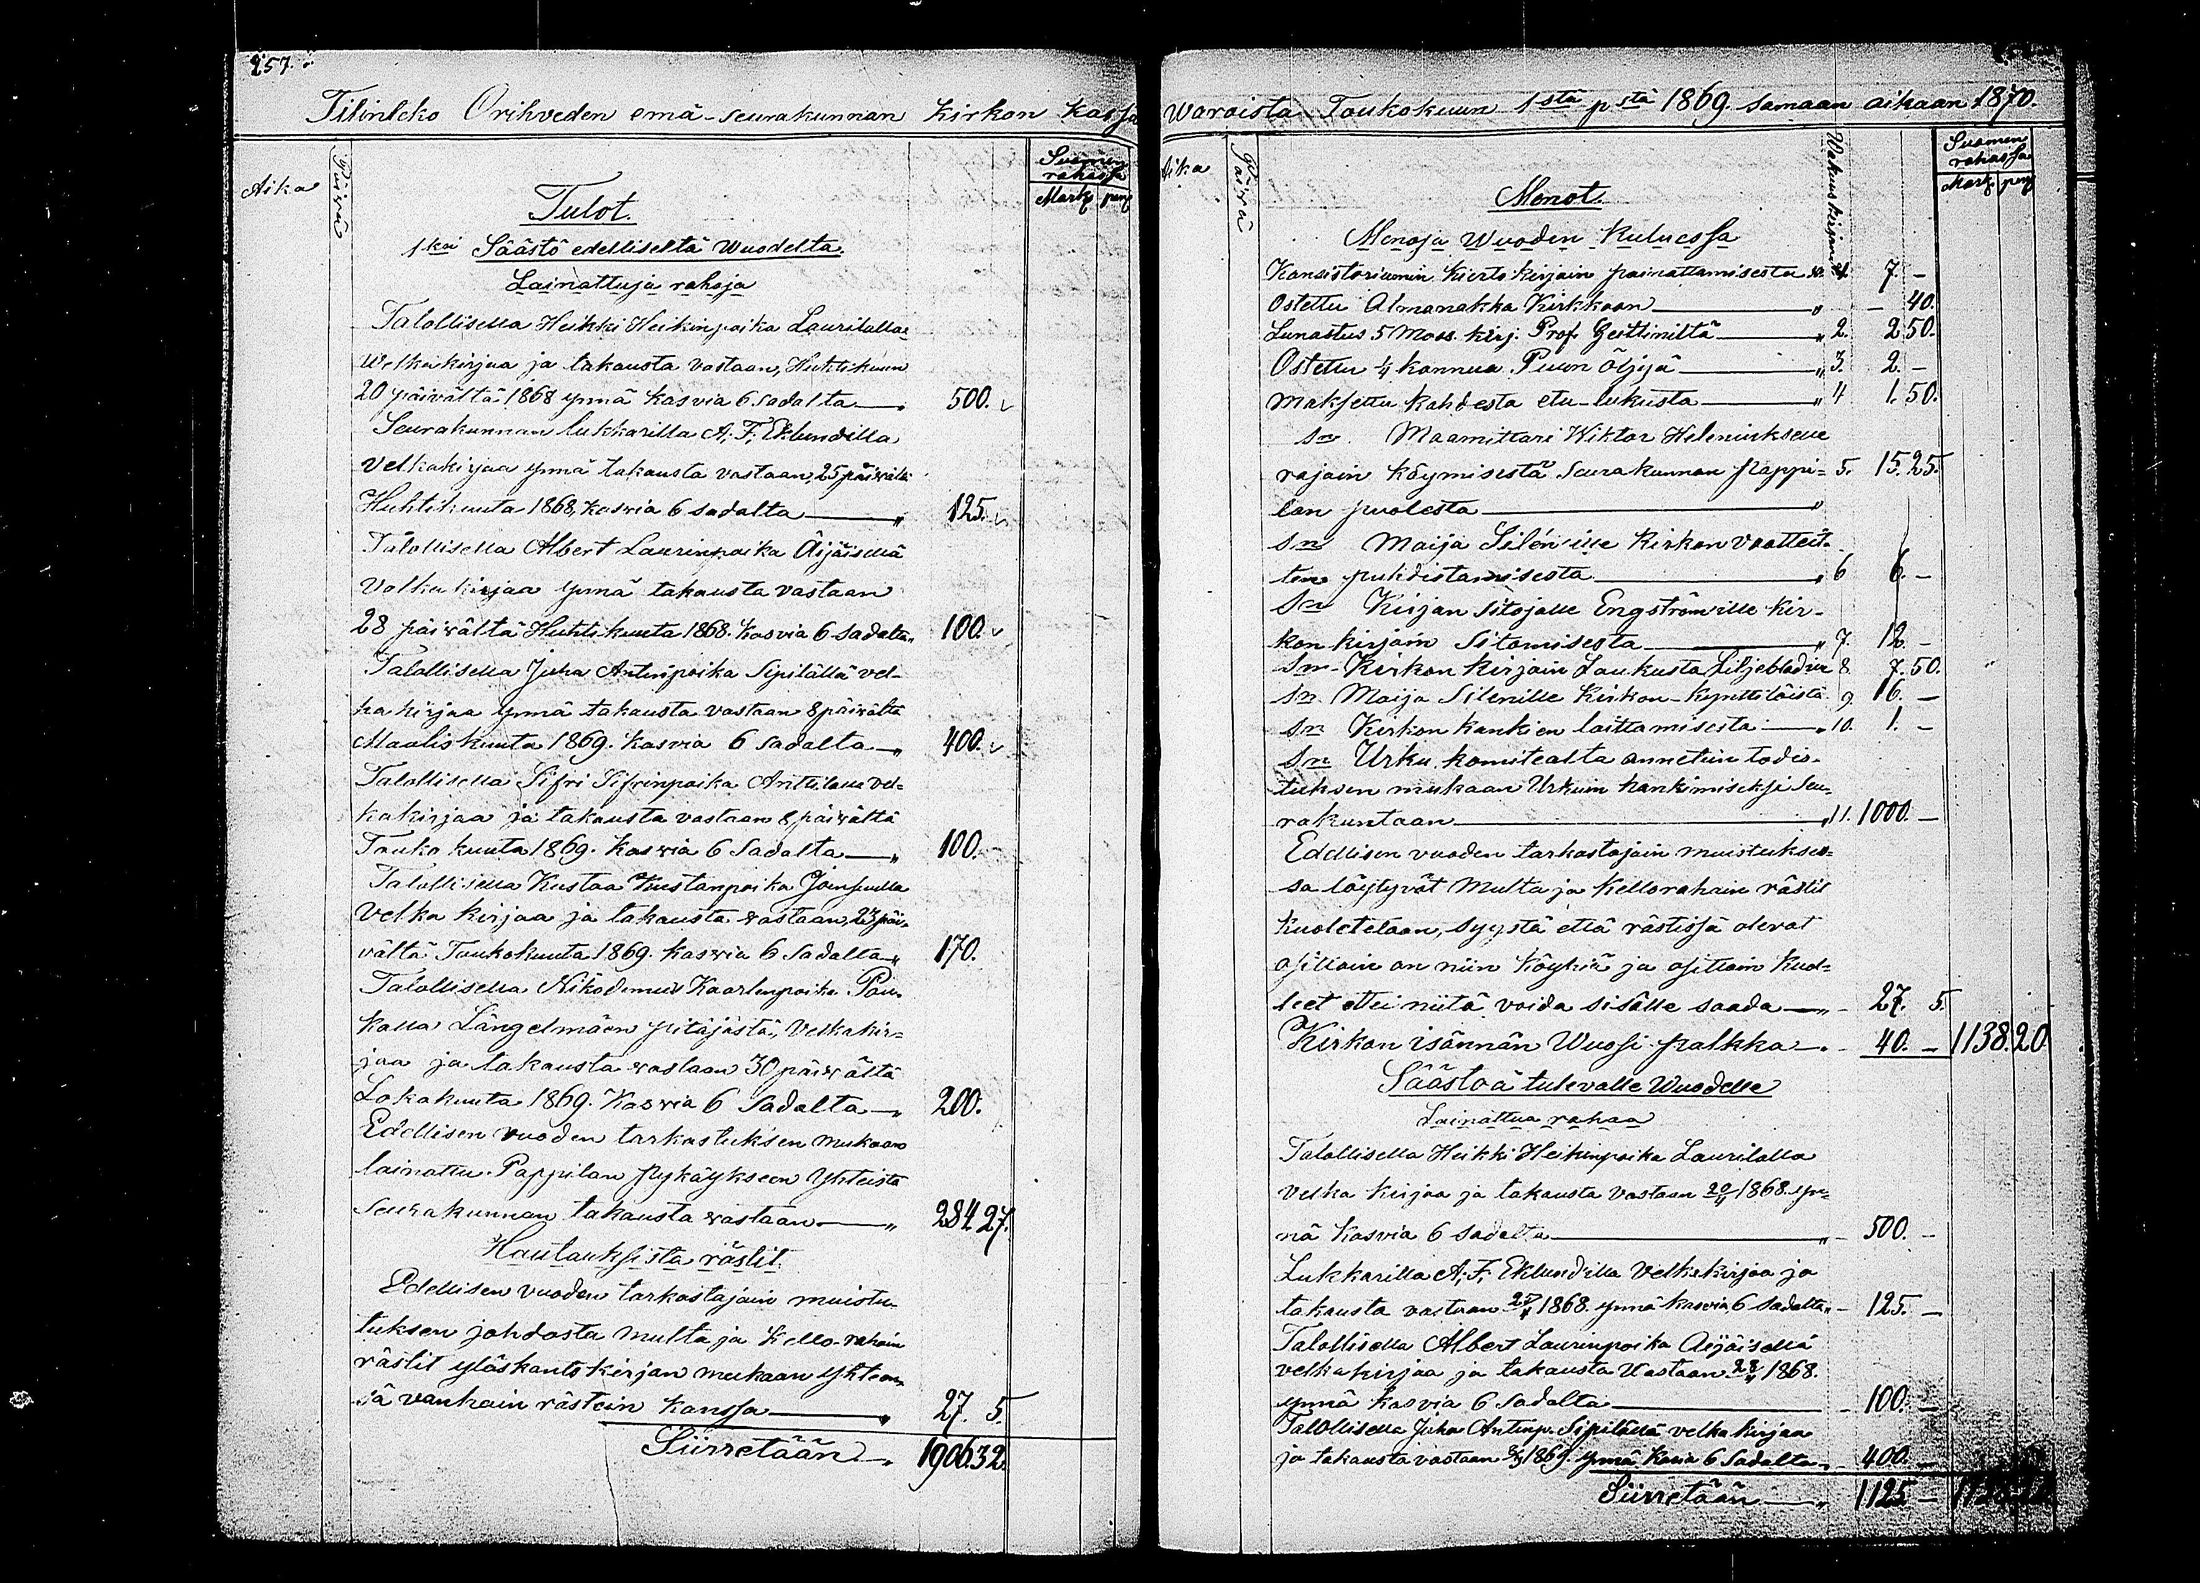 257.
Tilinteko Orihveden emä-seurakunnan Kirkon Kassa
Aika
Päivä
Suomen rahassa
Mark penj
Tulot.
1ksi Säästö edelliseltä Wuodelta.
Lainattuja rahoja
Talollisella Heikki Heikinpoika Laurilalla
Welkakirjaa ja takausta vastaan, Huhtikuun
20 päivältä 1868 ynnä Kasvia 6 Sadalta 500.
Seurakunnan lukkarilla A. F. Eklundilla
Velkakirjaa ynnä takausta vastaan, 25 päiwältä
Huhtikuuta 1868, Kasvia 6 sadalta " 125.
Talollisella Albert Laurinpoika Äijäisellä
Velkakirjaa ynnä takausta vastaan
28 päiwältä Huhtikuuta 1868. Kasvia 6 Sadalta " 100.
Talollisella Juha Antinpoika Sipilällä vel-
ka kirjaa ynnä takausta vastaan 8 päiwältä
Maaliskuuta 1869. Kasvia 6 Sadalta " 400.
Talollisella Sifri Sifrinpoika Anttilalla vel=
kakirjaa ja takausta vastaan 8 päiwältä
Touko kuuta 1869. Kasvia 6 Sadalta " 100.
Talollisella Kustaa Kustanpoika
Velka kirjaa ja takausta wastaan, 23 päi-
vältä Toukokuuta 1869. kasvia 6 Sadalta " 170.
Talollisella Nikodemus Kaarlenpoika Pou-
kalla Längelmäen pitäjästä, Velkakir=
jaa ja takausta wastaan 30 päiwältä
Lokakuuta 1869. Kasvia 6 Sadalta " 200.
Edellisen vuoden tarkastuksen mukaan
lainattu Pappilan Yhteistä
Seurakunnan takausta wastaan " 284 27.
Hautauksista rästit.
Edellisen vuoden tarkastajain muistu-
tuksen johdosta multa ja Kello-rahain
rästit yläskanto kirjan mukaan yhteen-
sä vanhain rästein kanssa " 27. 5.
Siirretään " 1906.32.
Waroista Toukokuun 1stä pstä 1869. samaan aikaan 1870.
Aika
Päivä
Wakuuskirjain
Suomen rahassa
Mark penj
Menot.
Menoja Wuoden Kuluessa
Konsistoriumin kierto kirjain painattamisesta 7. -
Ostettu Almanakka Kirkkoon " - 40.
Lunastus 5 Moss. kirj. Prof. Geitliniltä " 2. 2 50.
Ostettu 1/4 kannua Puun Öljyä " 3. 2. -
maksettu kahdesta etu-lukusta " 4 1. 50.
sn Maamittari Wiktor Heleniukselle
rajain käymisestä Seurakunnan pappi= 5. 15. 25.
lan puolesta "
sn Maija Silén'ille Kirkon vaatteit-
ten puhdistamisesta " 6 6. -
sn Kirjan Sitojalle Engströmille Kir-
kon kirjain Sitomisesta " 7. 12. -
sn Kirkon kirjain Laukusta Liljebladin 8. 7. 50.
sn Maija Silenille Kirkon-kynttilöistä 9. 16. -
sn Kirkon kankien laittamisesta " 10. 1. -
sn Urku komitealta annetuin todis-
tuksen mukaan Urkuin hankimiseksi Seu-
rakuntaan " 11. 1000. -
Edellisen vuoden tarkastajain muistukses-
sa löytyvät Multa ja Kellorahain rästit
Kuoletetaan, syystä että rästissä olevat
osittain on niin köyhiä ja osittain kuol=
leet ettei niitä voida sisälle saada " - 27. 5.
Kirkon isännän Wuosi palkka - 40. - 1138.20.
Säästöä tulevalle Wuodelle
Lainattua rahaa
Talollisella Heikki Heikinpoika Laurilalla
velka kirjaa ja takausta vastaan 20/4 1868. yn-
nä Kasvia 6 sadalta " - 500. -
Lukkarilla A. F. Eklundilla Velkakirjaa ja
takausta vastaan 25/4 1868. ynnä kasvia 6 Sadalta " - 125. -
Talollisella Albert Laurinpoika Äijäisellä
velkakirjaa ja takausta Vastaan 28/4 1868.
ynnä Kasvia 6 Sadalta - 100. -
Talollisella Juha Antinp. Sipilällä velka kirjaa
ja takausta vastaan 8/3 1869. ynnä Kasvia 6 Sadalta - 400. -
Siirretään " 1125 - 1138.20